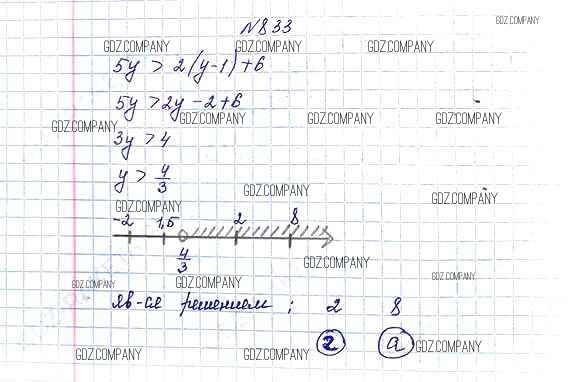 №833
GDZ.COMPANY
GDZ.COMPANY GDZ.COMPANY GDZ.COMPANY
5y > 2(y-1)+6
5y > 2y-2+6
GDZ.COMPANY GDZ.COMPANY GDZ.COMPANY GDZ.COMPANY
3y > 4
y > 4/3
GDZ.COMPANY GDZ.COMPANY
GDZ.COMPANY
-2 1,5 2 8
4/3
GDZ.COMPANY
GDZ.COMPANY GDZ.COMPANY GDZ.COMPANY
яв-ся решением ; 2 8
г а
GDZ.COMPANY GDZ.COMPANY GDZ.COMPANY